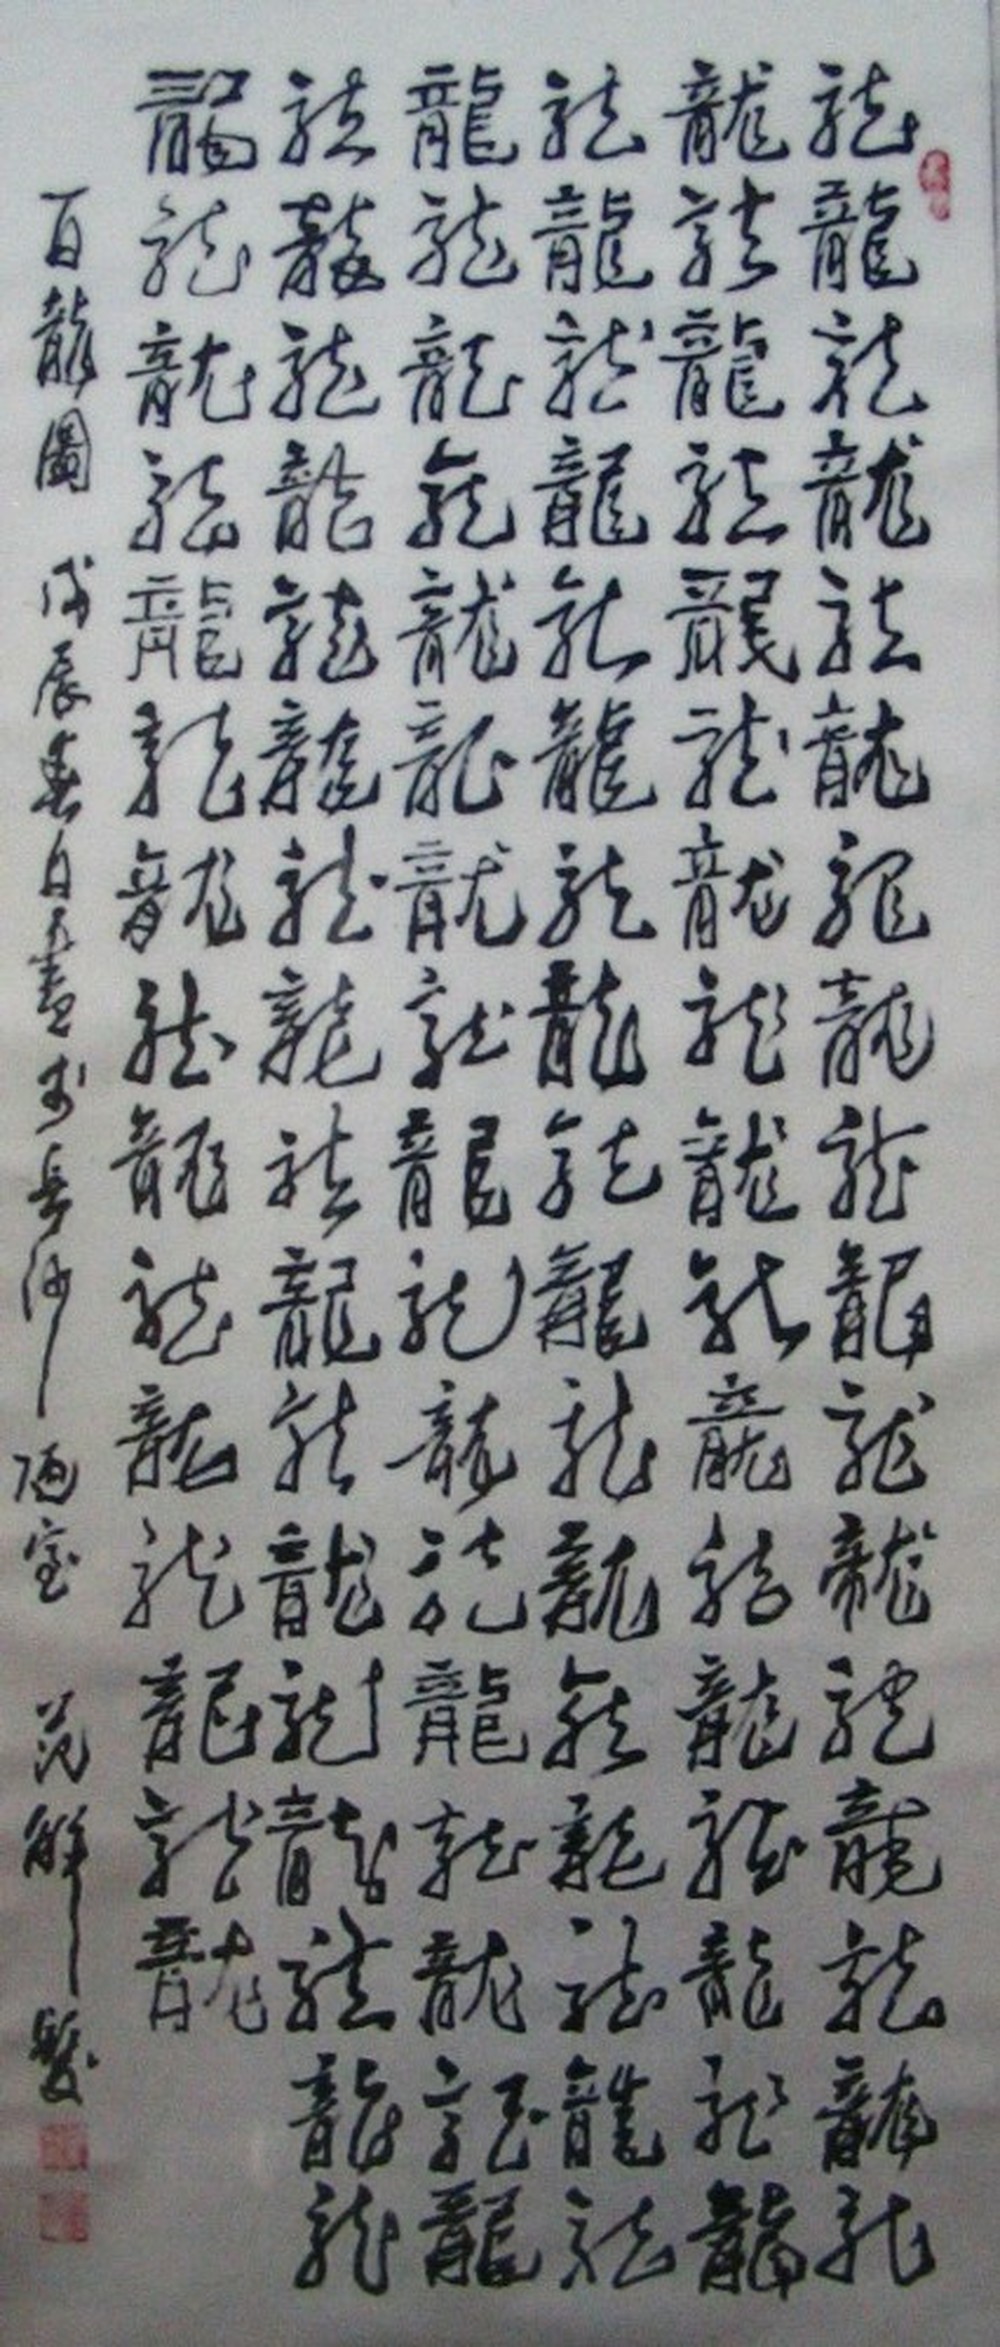 龍龍龍龍龍龍龍龍龍龍龍龍龍龍龍龍龍
龍龍龍龍龍龍龍龍龍龍龍龍龍龍龍龍龍
龍龍龍龍龍龍龍龍龍龍龍龍龍龍龍龍龍
龍龍龍龍龍龍龍龍龍龍龍龍龍龍龍龍龍
龍龍龍龍龍龍龍龍龍龍龍龍龍龍龍龍龍
龍龍龍龍龍龍龍龍龍龍龍龍龍龍龍
百龍圖 戊辰春書於長沙 陋室 范解